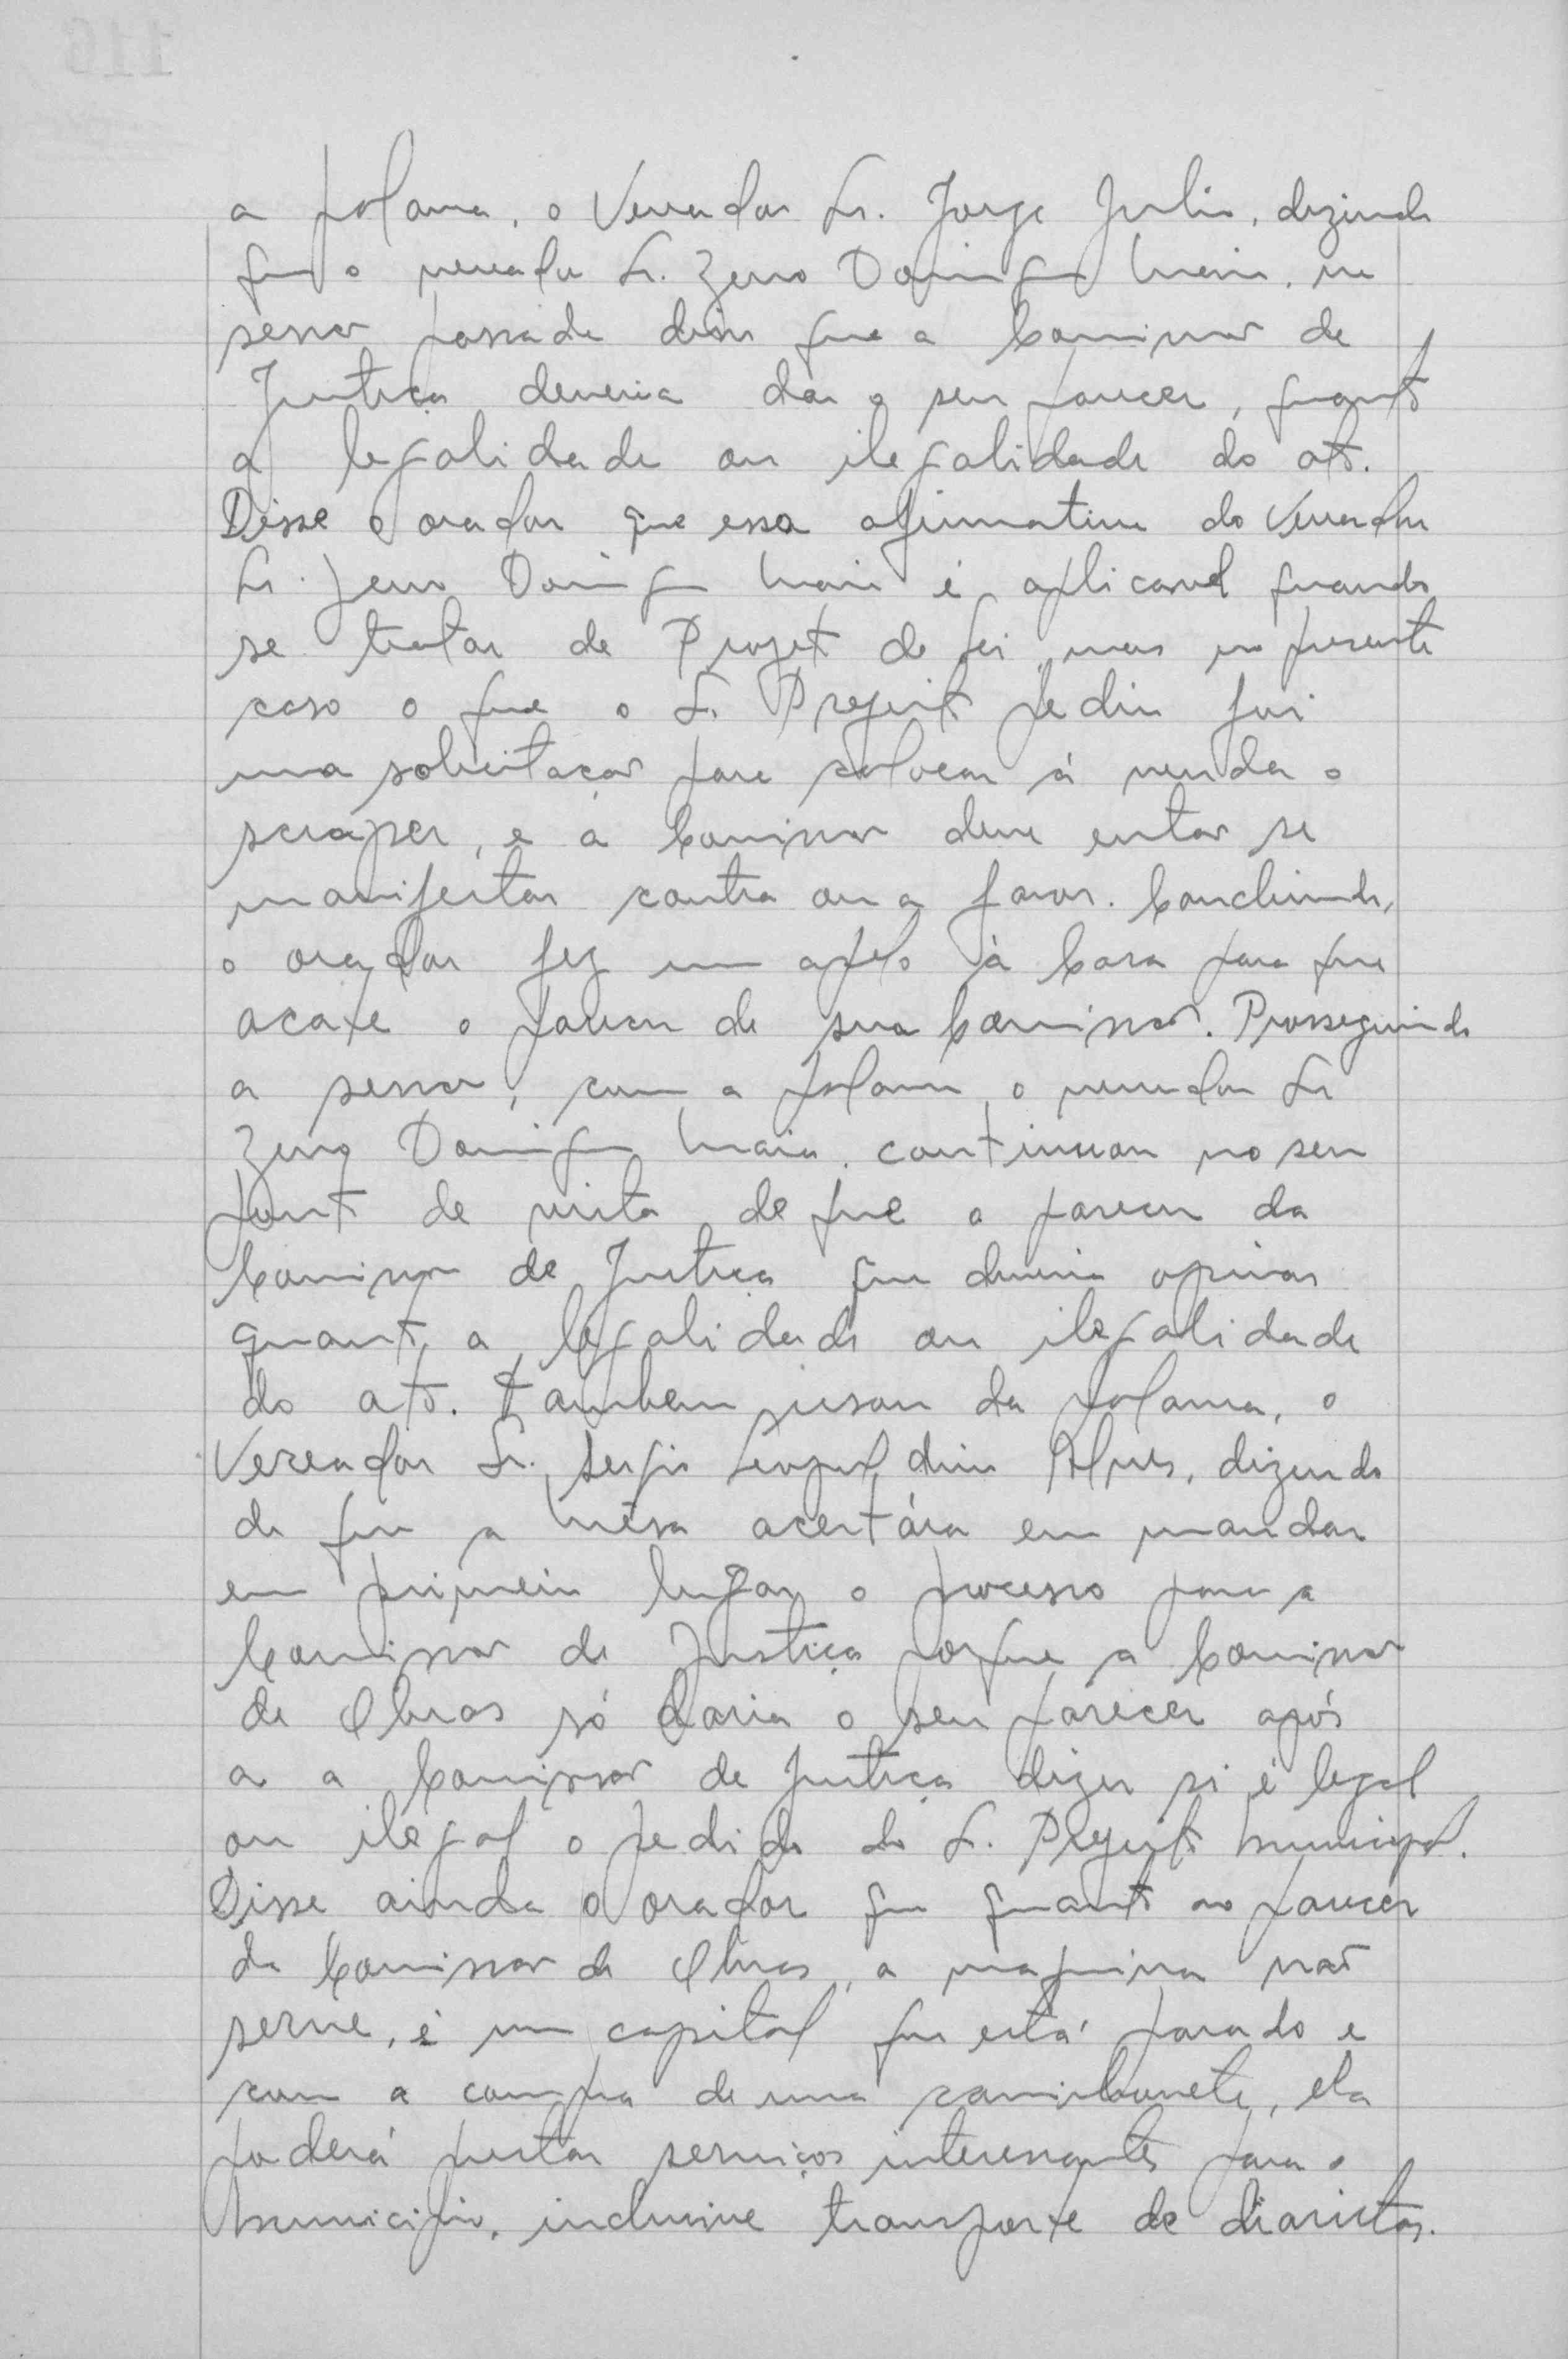 a palavra, o Vereador Sr. Jorge Julio, dizendo
que o vereador Sr. Zeno Domingues Maia, na
sessão passada disse que a Comissão de
Justiça deveria dar o seu parecer, quanto
a legalidade ou ilegalidade do ato.
Disse o orador que essa afirmativa do Vereador
Sr. Zeno Domingues Maia é aplicavel quando
se tratar de Projeto de Lei, mas no presente
caso o que o Sr. Prefeito pediu foi
uma solicitação para colocar á venda o
scraper, e a Comissão deve entao se
manifestar contra ou a favor. Concluindo,
o orador fez um apelo á Casa para que
acate o parecer de sua Comissão. Prosseguindo
a sessão, com a palavra, o vereador Sr
Zeno Domingues Maia, continuou no seu
ponto de vista de que o parecer da
Comissão de Justiça que deveria opinar
quanto a legalidade ou ilegalidade
do ato. Tambem usou da palavra, o
Vereador Sr. Sergio Leopoldino Alves, dizendo
de que a Mêsa acertára em mandar
em primeiro lugar o processo para a
Comissão de Justiça porque a Comissão
de Obras só daria o seu parecer após
a a Comissão de Justiça dizer si é legal
ou ilegal o pedido do Sr. Prefeito Municipal.
Disse ainda o orador que quanto ao parecer
da Comissão de Obras, a maquina não
serve, é um capital que está parado e
com a compra de uma caminhonete, ela
poderá prestar serviços interessantes para o
Municipio, inclusive transporte de diaristas.